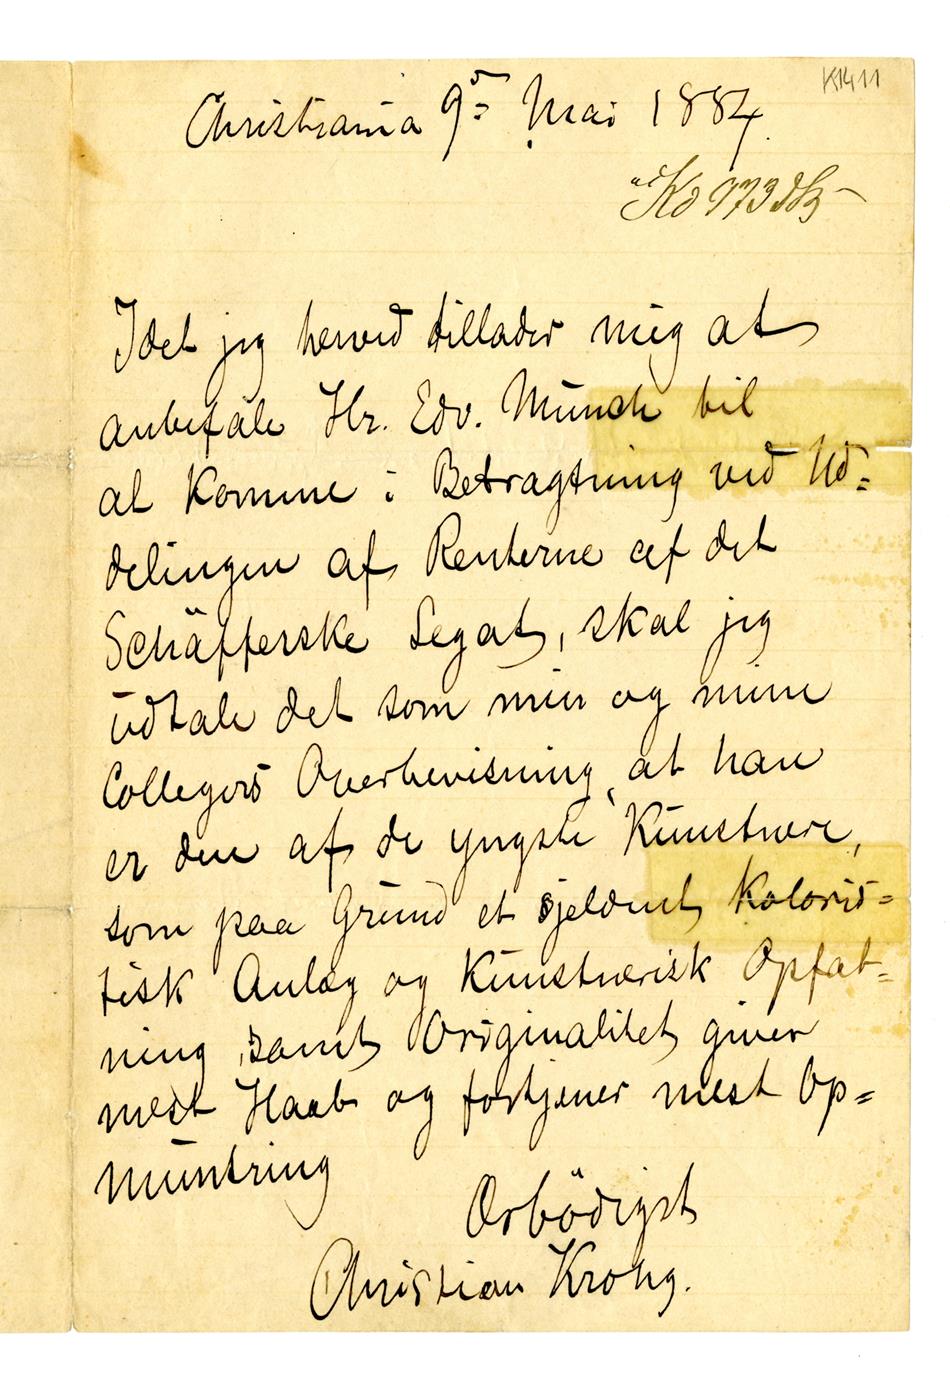 K1411
Christiania 9de Mai 1884.
Idet jeg herved tillader mig at
anbefale Hr. Edv. Munch til
at komme i Betragtning ved Ud=
delingen af Renterne af det
Schäfferske Legat, skal jeg
udtale det som min og mine
Collegers Overbevisning, at han
er den af de yngste Kunstnere,
som paa Grund et sjeldent koloris=
tisk Anlæg og kunstnerisk Opfat=
ning samt Originalitet giver
mest Haab og fortjener mest Op=
muntring
Ærbödigst
Christian Krohg.